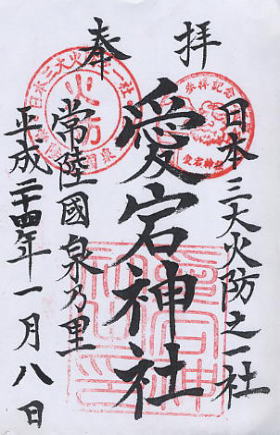 奉拝
日本三大火防之一社
愛宕神社
常陸國泉乃里
平成二十四年一月八日
火防
参拝記念
愛宕神社